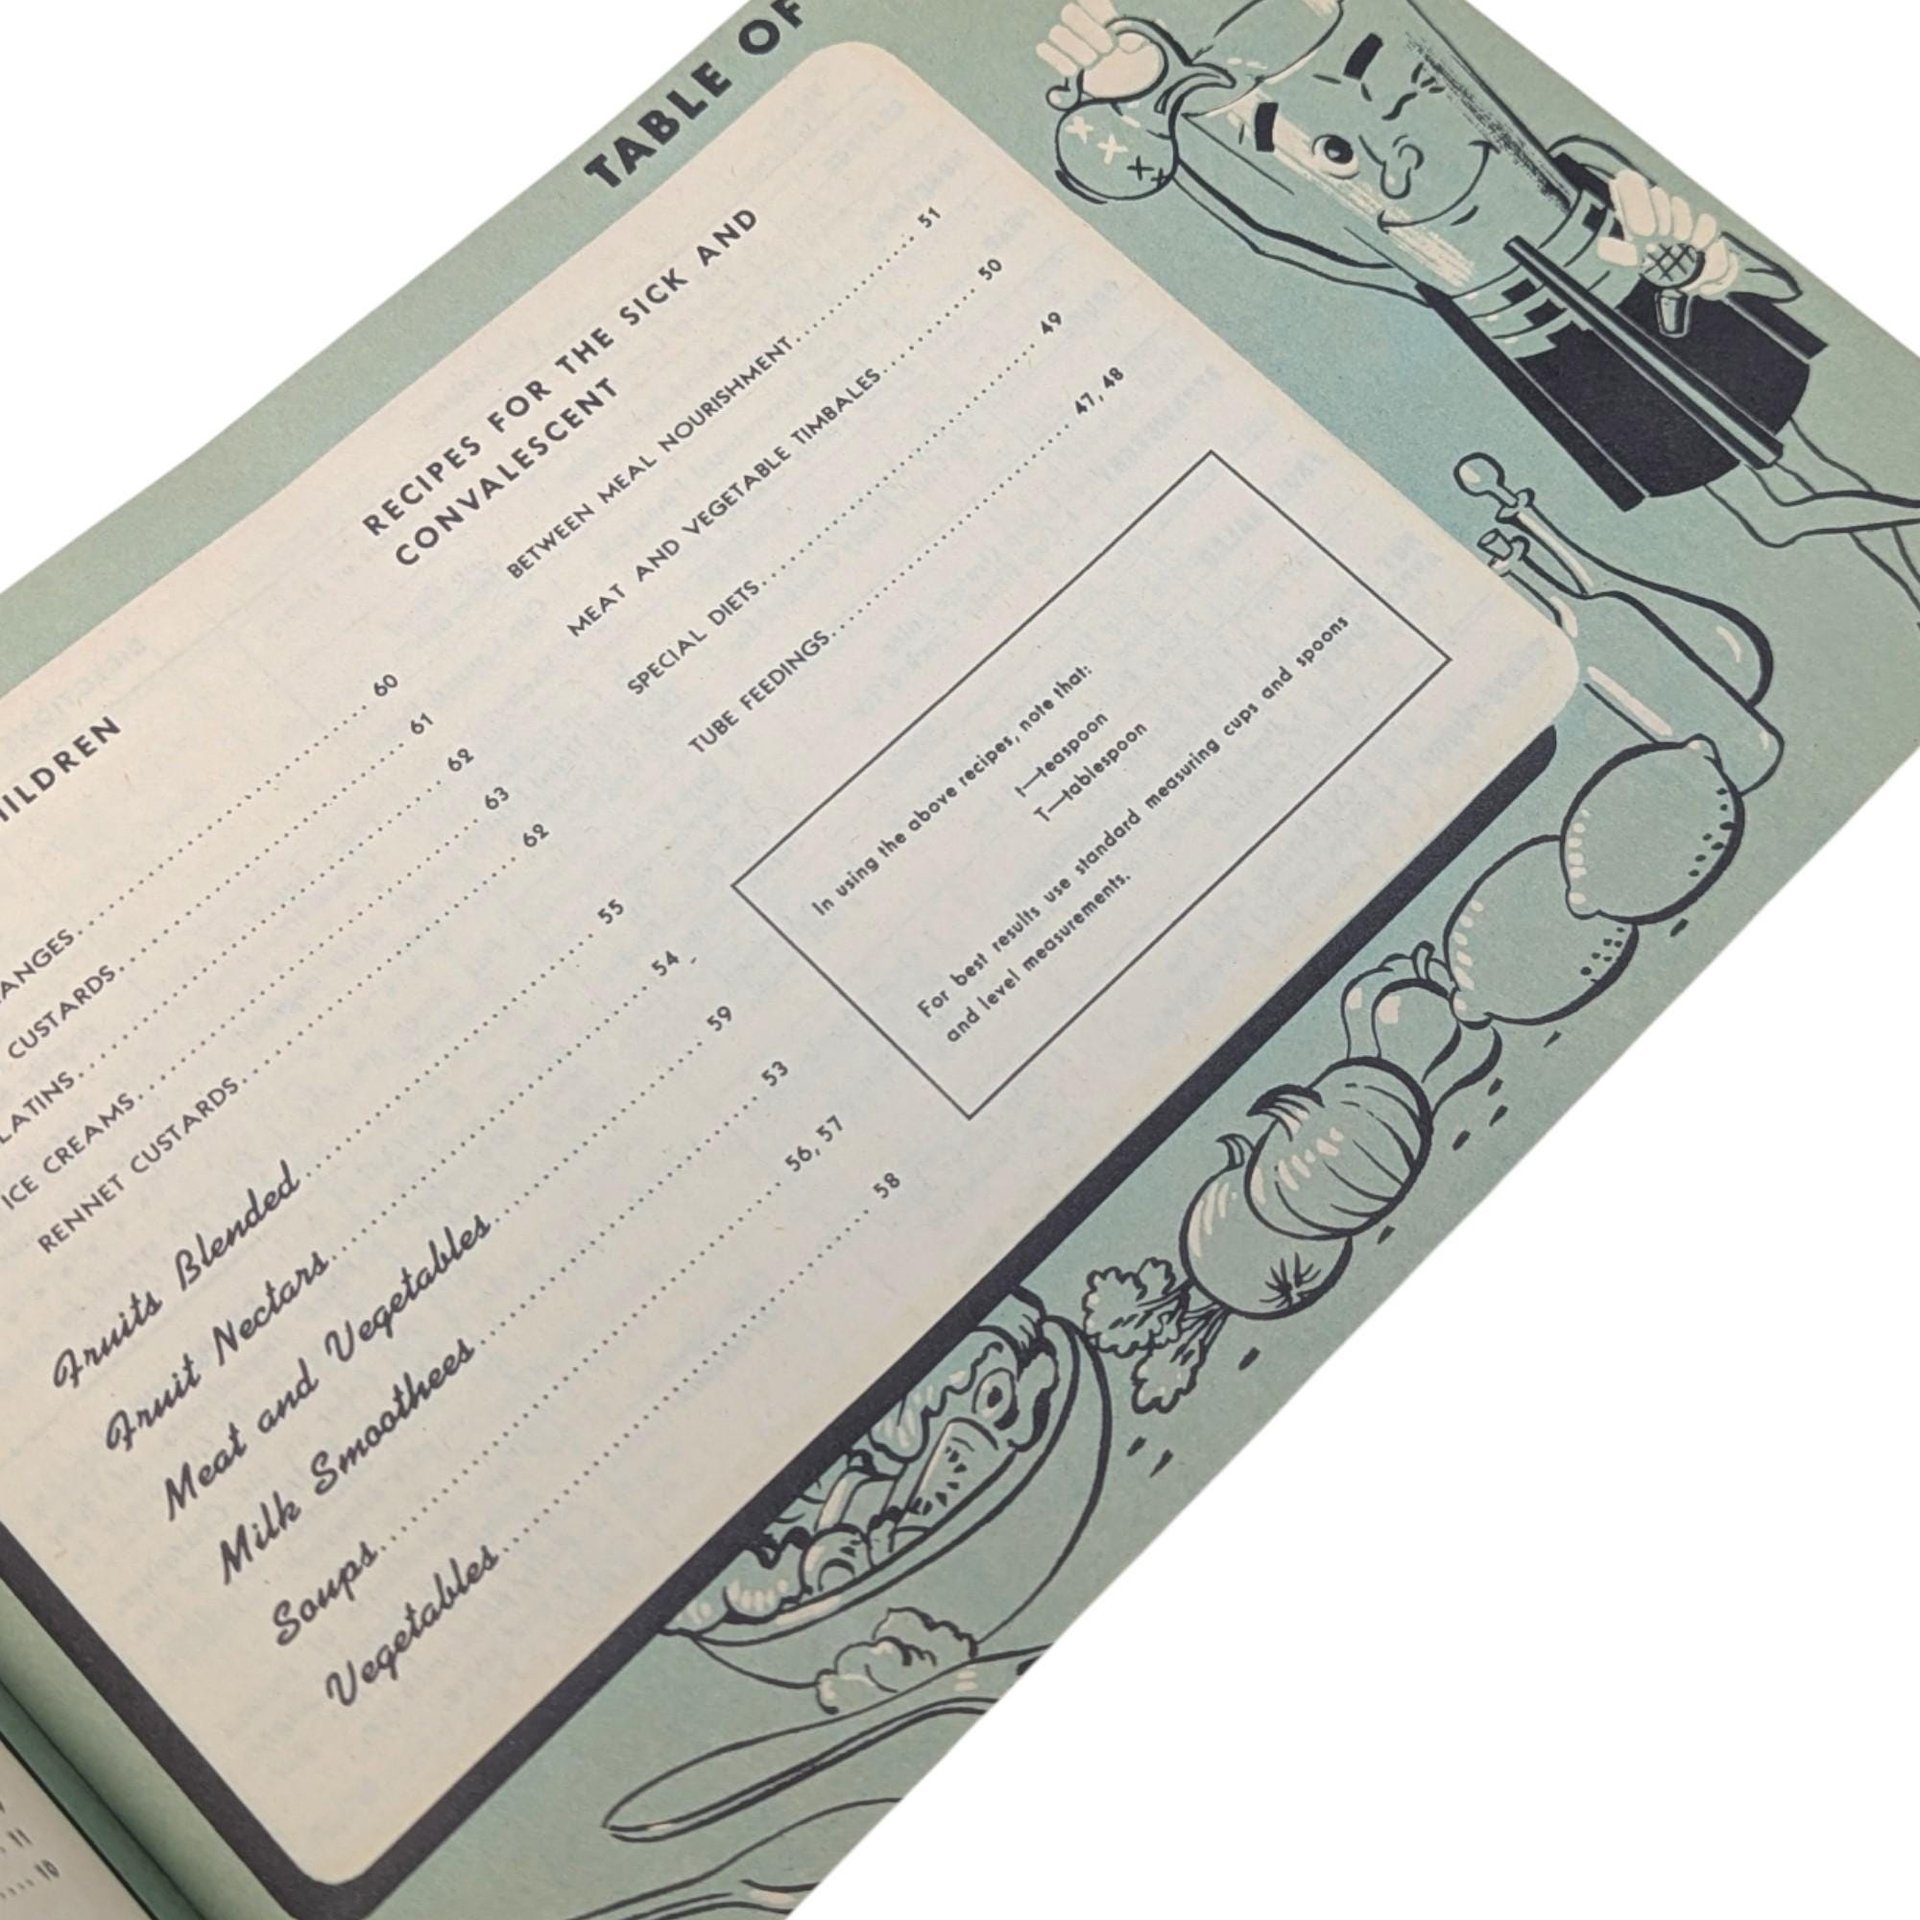 TABLE OF
ILDREN
ANGES 60
CUSTARDS 61
LATINS 62
ICE CREAMS 63
RENNET CUSTARDS 62
Fruits Blended 55
Fruit Nectars 54
Meat and Vegetables 59
Milk Smoothees 53
Soups 56, 57
Vegetables 58
RECIPES FOR THE SICK AND
CONVALESCENT
BETWEEN MEAL NOURISHMENT 51
MEAT AND VEGETABLE TIMBALES 50
SPECIAL DIETS 49
TUBE FEEDINGS 47, 48
In using the above recipes, note that:
t—teaspoon
T—tablespoon
For best results use standard measuring cups and spoons
and level measurements.
11
10